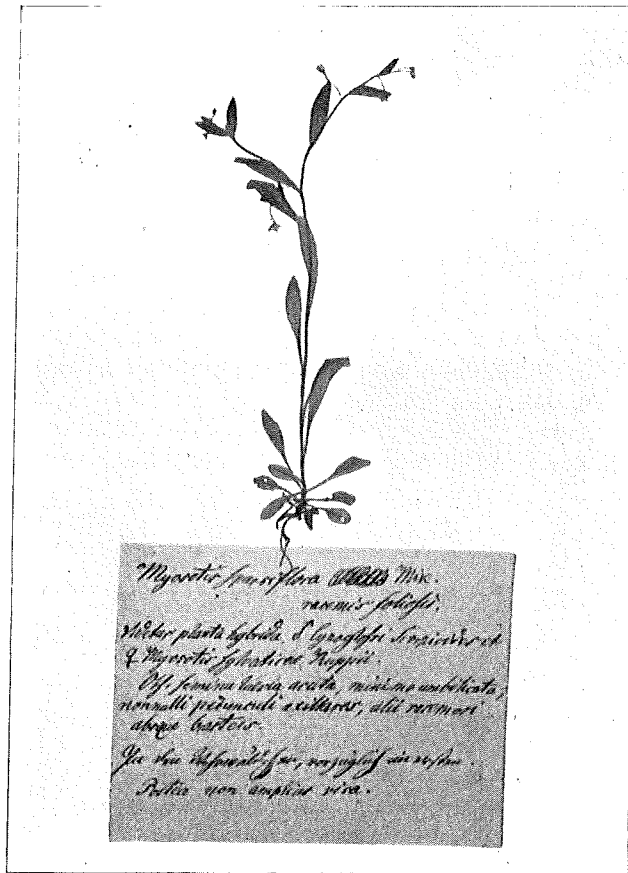 Myosotis sparsiflora Mik.
racemis foliosis.
planta hybrida ♂ Cynoglossi et
♀ Myosotis sylvaticae Ruppii.
Obs. semina laevia acuta, minime umbilicata,
nonnulli pedunculi axillares, alii racemosi
absque bracteis.
In den, vorzüglich im ersten.
Postea non amplius visa.